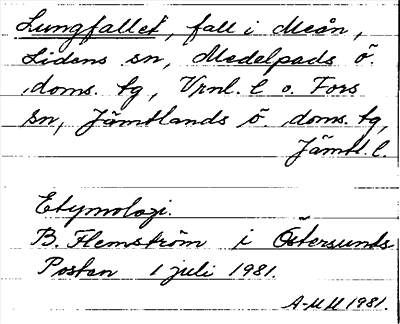 Lungfallet, fall i Meån,
Lidens sn, Medelpads ö.
doms. tg, Vrnl. l o. Fors
sn, Jämtlands ö. doms. tg,
Jämtl. l.
Etymologi.
B. Flemström i Östersunds
Posten 1 juli 1981.
A-MM 1981.